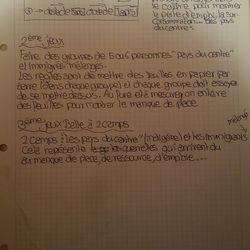 le calibre pour montrer
le perte d'emploi, la sur-
consommation... des pays
du centre.
2ème jeux
Faire des groupes de 5 ou 6 personnes "pays du centre"
et immigrés mélangés.
Les règles sont de mettre des feuilles en papier par
terre (dans chaque groupe) et chaque groupe doit essayer
de se mettre dessus. Au fure et à mesure on enlève
des feuilles pour montrer le manque de place.
3ème jeux Balle à 2 camps
2 camps: les pays du centre (indigène) et les immigrants
Cela représente les querelles qui arrivent du
au manque de place, de ressource, d'emploie....